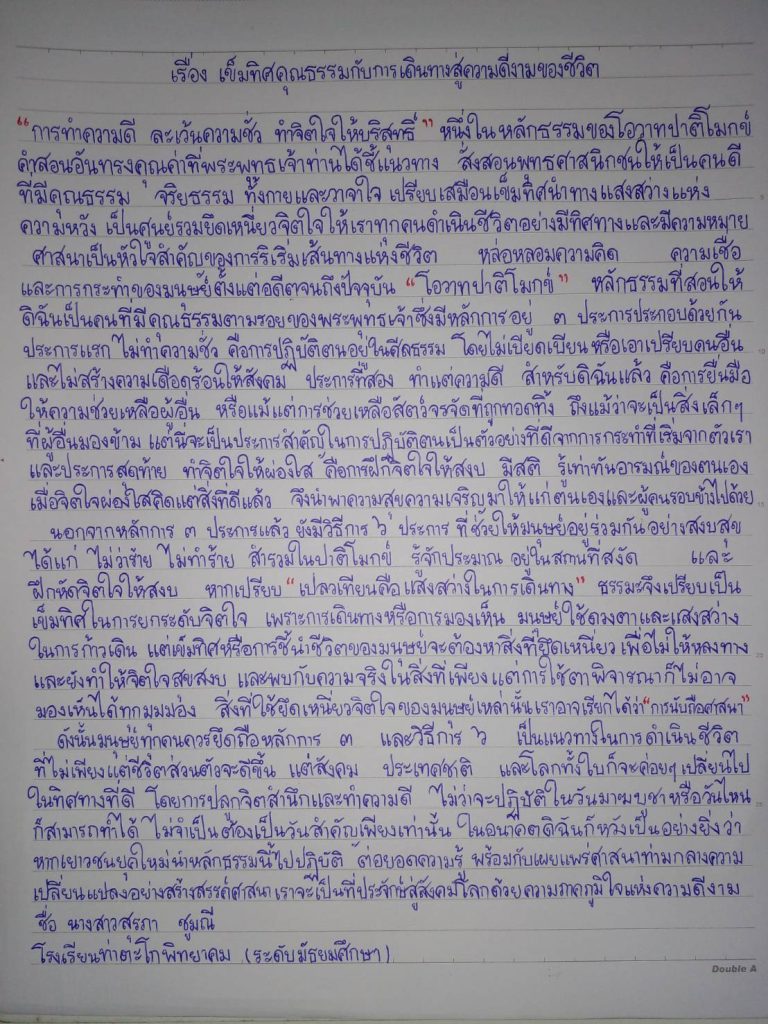 เรื่อง เข็มทิศคุณธรรมกับการเดินทางสู่ความดีงามของชีวิต
“การทำความดี ละเว้นความชั่ว ทำจิตใจให้บริสุทธิ์” หนึ่งในหลักธรรมของโอวาทปาติโมกข์
คำสอนอันทรงคุณค่าที่พระพุทธเจ้าท่านได้ชี้แนวทาง สั่งสอนพุทธศาสนิกชนให้เป็นคนดี
ที่มีคุณธรรม จริยธรรม ทั้งกายและวาจาใจ เปรียบเสมือนเข็มทิศนำทางแสงสว่างแห่ง
ความหวัง เป็นศูนย์รวมยึดเหนี่ยวจิตใจให้เราทุกคนดำเนินชีวิตอย่างมีทิศทางและมีความหมาย
ศาสนาเป็นหัวใจสำคัญของการริเริ่มเส้นทางแห่งชีวิต หล่อหลอมความคิด ความเชื่อ
และการกระทำของมนุษย์ตั้งแต่อดีตจนถึงปัจจุบัน “โอวาทปาติโมกข์” หลักธรรมที่สอนให้
ดิฉันเป็นคนที่มีคุณธรรมตามรอยของพระพุทธเจ้าซึ่งมีหลักการอยู่ ๓ ประการประกอบด้วยกัน
ประการแรก ไม่ทำความชั่ว คือการปฏิบัติตนอยู่ในศีลธรรม โดยไม่เบียดเบียน หรือเอาเปรียบคนอื่น
และไม่สร้างความเดือดร้อนให้สังคม ประการที่สอง ทำแต่ความดี สำหรับดิฉันแล้ว คือการยื่นมือ
ให้ความช่วยเหลือผู้อื่น หรือแม้แต่การช่วยเหลือสัตว์จรจัดที่ถูกทอดทิ้ง ถึงแม้ว่าจะเป็นสิ่งเล็กๆ
ที่ผู้อื่นมองข้าม แต่นี่จะเป็นประการสำคัญในการปฏิบัติตนเป็นตัวอย่างที่ดีจากการกระทำที่เริ่มจากตัวเรา
และประการสุดท้าย ทำจิตใจให้ผ่องใส คือการฝึกจิตใจให้สงบ มีสติ รู้เท่าทันอารมณ์ของตนเอง
เมื่อจิตใจผ่องใสคิดแต่สิ่งที่ดีแล้ว จึงนำพาความสุขความเจริญมาให้แก่ตนเองและผู้คนรอบข้างไปด้วย
นอกจากหลักการ ๓ ประการแล้ว ยังมีวิธีการ ๖ ประการ ที่ช่วยให้มนุษย์อยู่ร่วมกันอย่างสงบสุข
ได้แก่ ไม่ว่าร้าย ไม่ทำร้าย สำรวมในปาติโมกข์ รู้จักประมาณ อยู่ในสถานที่สงัด และ
ฝึกหัดจิตใจให้สงบ หากเปรียบ “เปลวเทียนคือแสงสว่างในการเดินทาง” ธรรมะจึงเปรียบเป็น
เข็มทิศในการยกระดับจิตใจ เพราะการเดินทางหรือการมองเห็น มนุษย์ใช้ดวงตาและแสงสว่าง
ในการก้าวเดิน แต่เข็มทิศหรือการชี้นำชีวิตของมนุษย์จะต้องหาสิ่งที่ยึดเหนี่ยว เพื่อไม่ให้หลงทาง
และยังทำให้จิตใจสุขสงบ และพบกับความจริงในสิ่งที่เพียงแต่การใช้ตาพิจารณาก็ไม่อาจ
มองเห็นได้ทุกมุมมอง สิ่งที่ใช้ยึดเหนี่ยวจิตใจของมนุษย์เหล่านั้นเราอาจเรียกได้ว่า “การนับถือศาสนา”
ดังนั้นมนุษย์ทุกคนควรยึดถือหลักการ ๓ และวิธีการ ๖ เป็นแนวทางในการดำเนินชีวิต
ที่ไม่เพียงแต่ชีวิตส่วนตัวจะดีขึ้น แต่สังคม ประเทศชาติ และโลกทั้งใบก็จะค่อยๆ เปลี่ยนไป
ในทิศทางที่ดี โดยการปลูกจิตสำนึกและทำความดี ไม่ว่าจะปฏิบัติในวันมาฆบูชา หรือวันไหน
ก็สามารถทำได้ ไม่จำเป็นต้องเป็นวันสำคัญเพียงเท่านั้น ในอนาคตดิฉันก็หวังเป็นอย่างยิ่งว่า
หากเยาวชนยุคใหม่นำหลักธรรมนี้ไปปฏิบัติ ต่อยอดความรู้ พร้อมกับเผยแพร่ศาสนาท่ามกลางความ
เปลี่ยนแปลงอย่างสร้างสรรค์ศาสนาเราจะเป็นที่ประจักษ์สู่สังคมโลกด้วยความภาคภูมิใจแห่งความดีงาม
ชื่อ นางสาวสุรภา ชูมณี
โรงเรียนท่าตะโกพิทยาคม (ระดับมัธยมศึกษา)
Double A